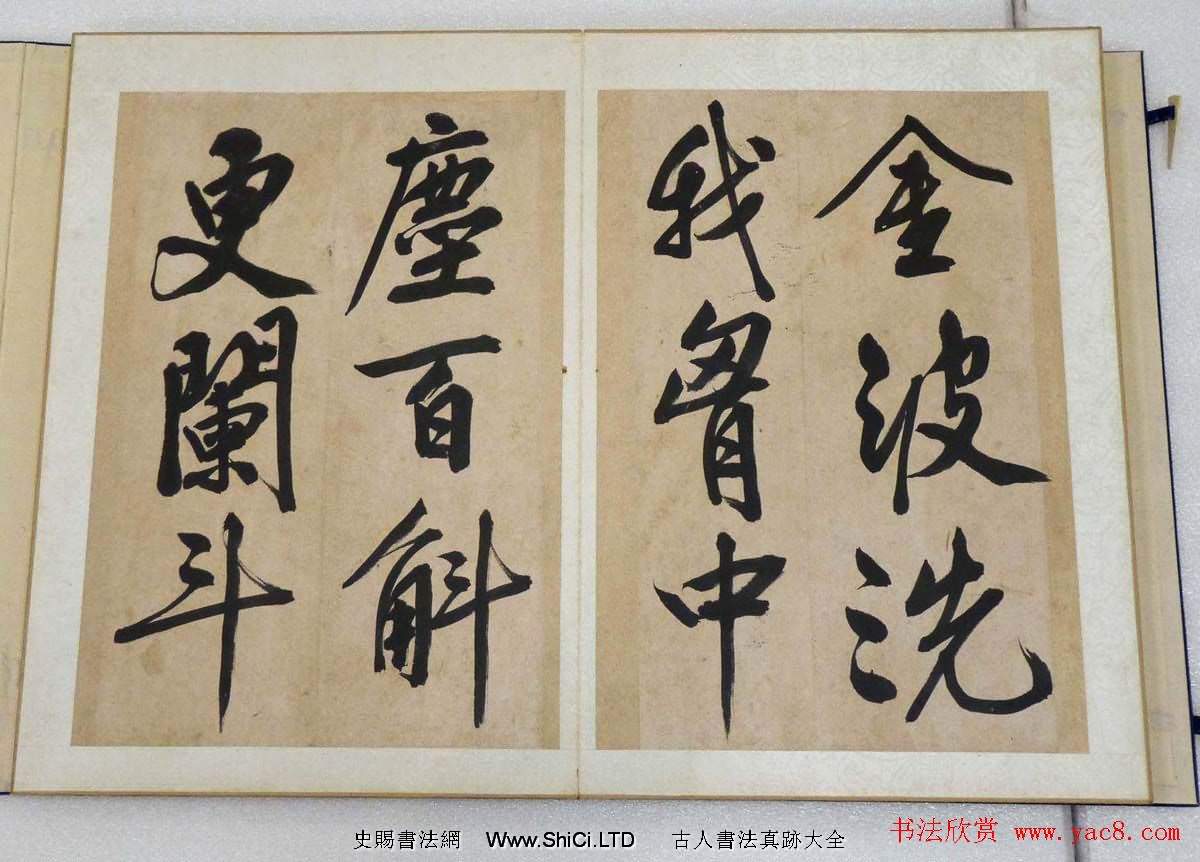 金波洗
我胷中
塵百斛
更闌斗
史賜書法網 Www.ShiCi.LTD 古人書法真跡大全
书法欣赏 www.yac8.com